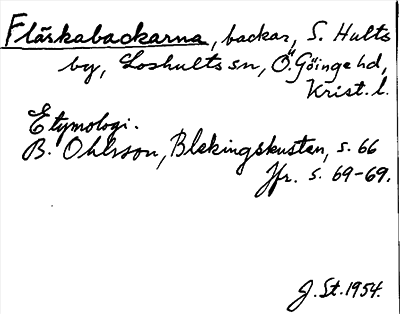 Fläskabackarna, backar, S. Hults
by, Loshults sn, Ö. Göinge hd,
Krist. l.
Etymologi.
B. Ohlsson, Blekingskusten, s. 66
Jfr. s. 69-69.
J. St. 1954.